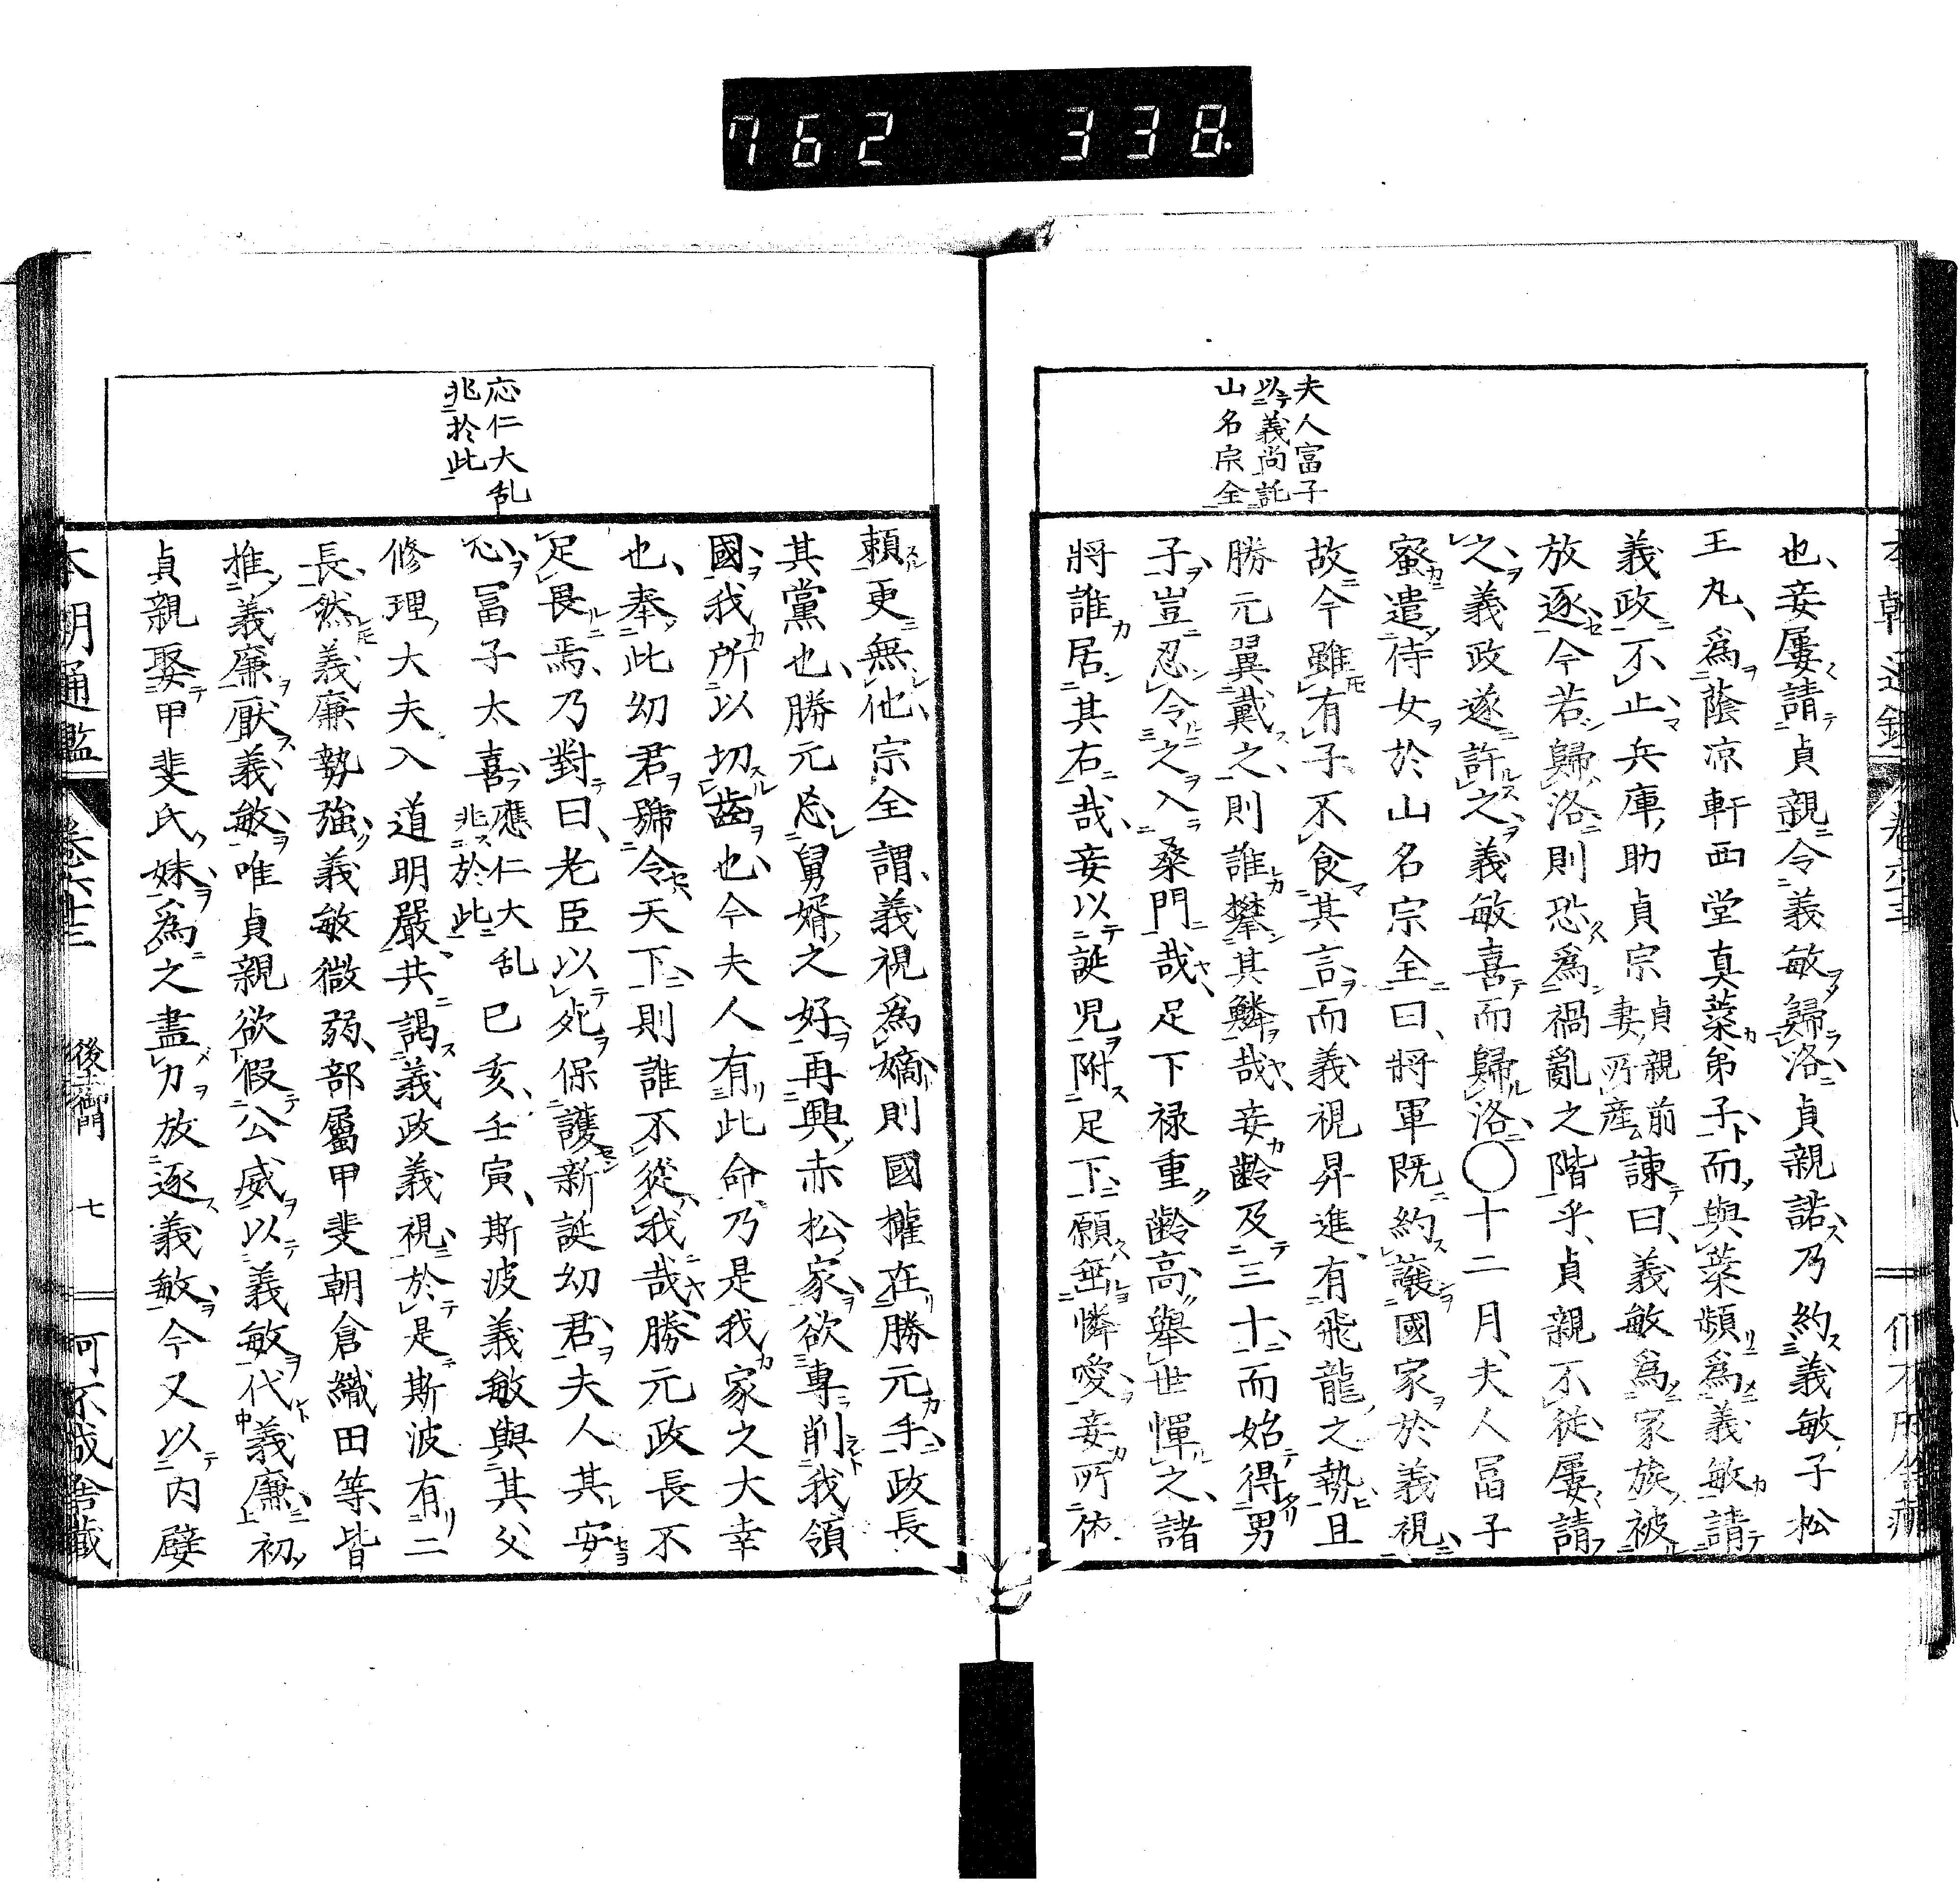 762 338
夫人富子
以義尚託
山名宗全
也、妾屢請貞親令義敏歸洛、貞親諾、乃約義敏子松
王丸、爲蔭凉軒西堂真蘂弟子、而與蘂頻爲義敏請
義政、不止、兵庫助貞宗貞親前妻所產諫曰、義敏爲家族被
放逐、今若歸洛則恐爲禍亂之階乎、貞親不從、屢請
之、義政遂許之、義敏喜而歸洛、〇十二月、夫人冨子
蜜遣侍女於山名宗全曰、將軍既約讓國家於義視、
故今雖有子不食其言、而義視昇進、有飛龍之勢、且
勝元翼戴之、則誰攀其鱗哉、妾齡及三十、而始得男
子、豈忍令之入桑門哉、足下禄重齡高、舉世憚之、諸
將誰居其右哉、妾以誕児附足下、願無憐愛妾所依
応仁大乱
兆於此
賴更無他、宗全謂、義視爲嫡則國權在勝元手、政長
其黨也、勝元忘舅婿之好、再興赤松家、欲專削我領
國、我所以切齒也、今夫人有此命、乃是我家之大幸
也、奉此幼君、號令天下、則誰不從我哉、勝元政長不
足畏焉、乃對曰、老臣以死保護新誕幼君、夫人其安
心、冨子太喜、應仁大乱兆於此已亥、壬寅、斯波義敏與其父
修理大夫入道明嚴、共謁義政義視、於是斯波有二
長、然義廉勢強、義敏微弱、部屬甲斐朝倉織田等、皆
推義廉厭義敏、唯貞親欲假公威、以義敏代義廉、初
貞親娶甲斐氏妹、爲之盡力放逐義敏、今又以内嬖
本朝通鑑 卷六十三 後土御門 七